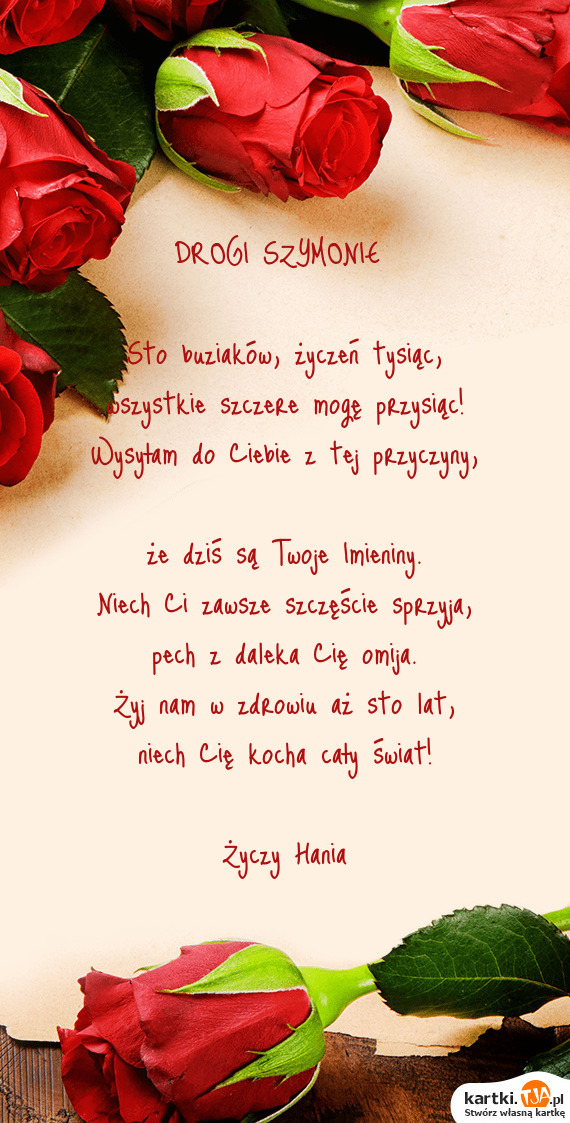 DROGI SZYMONIE
Sto buziaków, życzeń tysiąc,
wszystkie szczere mogę przysiąc!
Wysyłam do Ciebie z tej przyczyny,
że dziś są Twoje Imieniny.
Niech Ci zawsze szczęście sprzyja,
pech z daleka Cię omija.
Żyj nam w zdrowiu aż sto lat,
niech Cię kocha cały świat!
Życzy Hania
kartki.TJA.pl
Stwórz własną kartkę